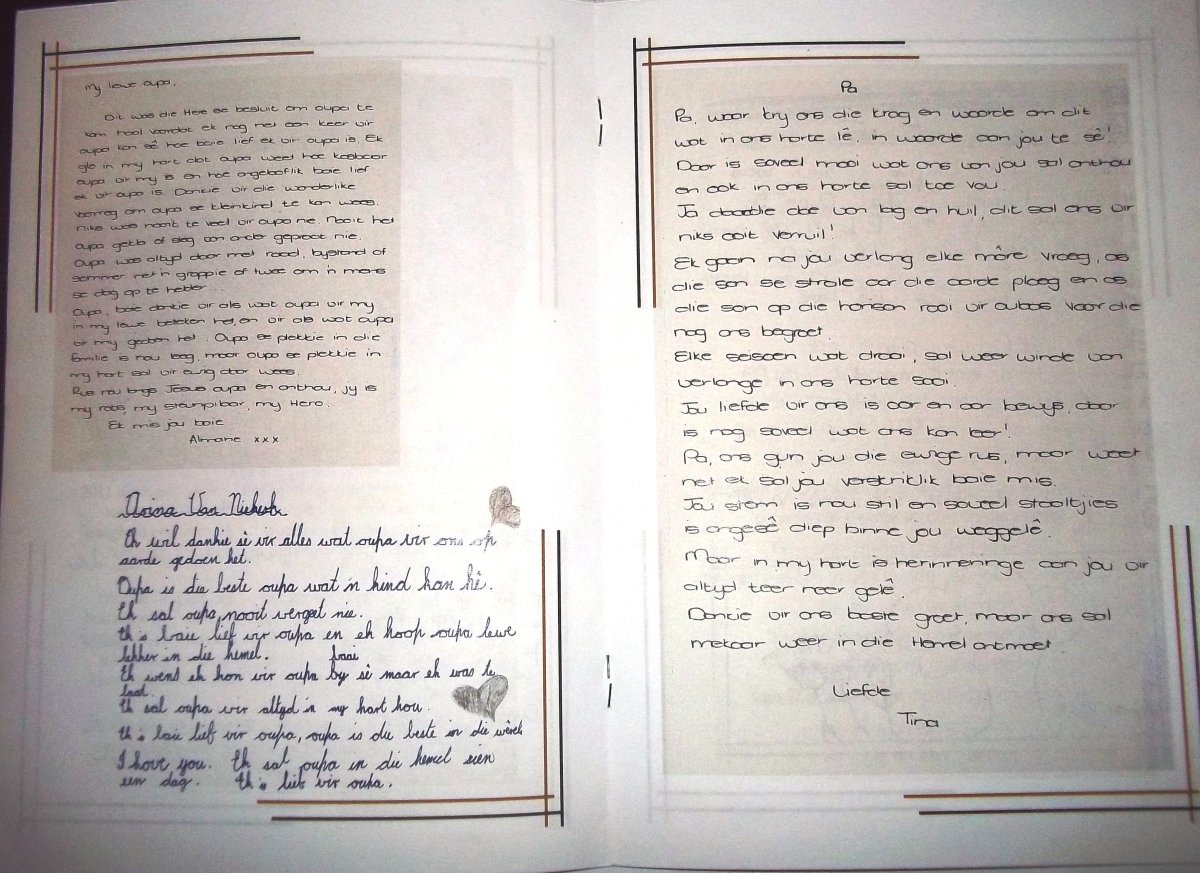 My liewe oupa,
Dit was die Here se besluit om oupa te
kom haal voordat ek nog net een keer vir
oupa kon sê hoe baie lief ek vir oupa is. Ek
glo in my hart dat oupa weet hoe kosbaar
oupa vir my is en hoe ongelooflik baie lief
ek vir oupa is. Dankie vir die wonderlike
voorreg om oupa se kleinkind te kon wees.
niks was nooit te veel vir oupa nie. Nooit het
oupa gekla of sleg van ander gepraat nie.
Oupa was altyd daar met raad, bystand of
sommer net 'n grappie of twee om 'n mens
se dag op te helder...
Oupa, baie dankie vir als wat oupa vir my
in my lewe beteken het, en vir als wat oupa
vir my gedoen het. Oupa se plekkie in die
familie is nou leeg, maar oupa se plekkie in
my hart sal vir ewig daar wees.
Rus nou langs Jesus oupa en onthou, jy is
my rots, my steunpilaar, my Hero.
Ek mis jou baie
xxx
Van Niekerk
Ek wil dankie sê vir alles wat oupa vir ons op
aarde gedoen het.
Oupa is die beste oupa wat 'n kind kan hê.
Ek sal oupa nooit verget nie.
Ek is baie lief vir oupa en ek hoop oupa lewe
lekker in die hemel.
baai
Ek wens ek kon vir oupa by sê maar ek was te
laat.
Ek sal oupa vir altyd in my hart hou.
Ek is baie lief vir oupa, oupa is die beste in die wêreld
I love you. Ek sal oupa in die hemel sien
een dag. Ek is lief vir oupa.
Pa
Pa, waar kry ons die krag en woorde om dit
wat in ons harte lê, in woorde aan jou te sê!
Daar is soveel mooi wat ons van jou sal onthou
en ook in ons harte sal toe vou.
Ja daardie dae van lag en huil, dit sal ons vir
niks ooit verruil!
Ek gaan na jou verlang elke môre vroeg, as
die son se strale oor die aarde ploeg en as
die son op die horison rooi vir oulaas voor die
nag ons begroet.
Elke seisoen wat draai, sal weer winde van
verlange in ons harte saai.
Jou liefde vir ons is oor en oor bewys, daar
is nog soveel wat ons kon leer!
Pa, ons gun jou die ewige rus, maar weet
net ek sal jou verskriklik baie mis.
Jou stem is nou stil en soveel staaltjies
is ongesê diep binne jou weggelê.
Maar in my hart is herinneringe aan jou vir
altyd teer neer gelê.
Dankie vir ons beste groet, maar ons sal
mekaar weer in die Hemel ontmoet.
Liefde
Tina